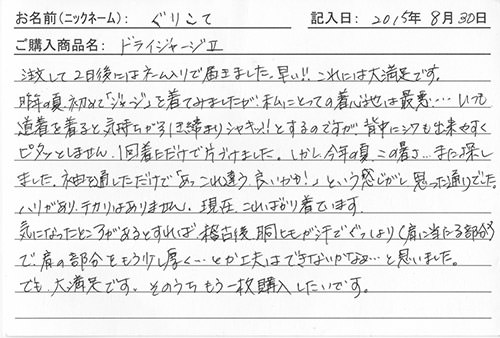 お名前(ニックネーム): ぐりこて 記入日: 2015年 8月 30日
ご購入商品名: ドライジャージⅡ
注文して2日後にはネーム入りで届きました。早い!! これには大満足です。
昨年の夏、初めて「ジャージ」を着てみましたが、私にとっての着心地は最悪… いつも
道着を着ると気持ちが引き締まりシャキッ!! とするのですが、背中にシワも出来やすく
ピタッとしません。1回着ただけで片づけました。しかし、今年の夏、この暑さ… また探し
ました。袖を通しただけで「あっ これ違う、良いかも!」という感じがし 思った通りでした。
ハリがあり、テカリはありません。現在、こればかり着ています。
気になったところがあるとすれば 稽古後、胴ヒモが汗でぐっしより(肩に当たる部分)
で、肩の部分をもう少し厚く… とか工夫はできないかなぁ… と思いました。
でも、大満足です。そのうち もう一枚購入したいです。